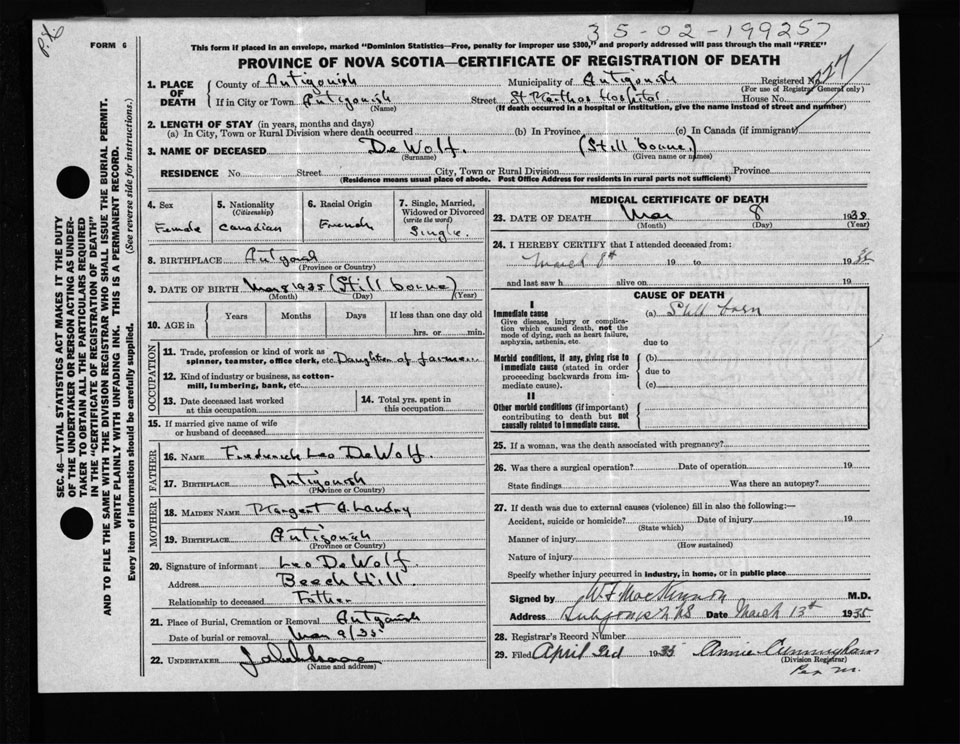 35-02-199257
P.X.
FORM 6
This form if placed in an envelope, marked "Dominion Statistics—Free, penalty for improper use $300," and properly addressed will pass through the mail "FREE"
PROVINCE OF NOVA SCOTIA—CERTIFICATE OF REGISTRATION OF DEATH
227
1. PLACE OF DEATH
County of Antigonish Municipality of Antigonish Registered No.
(For use of Registrar General only)
If in City or Town Antigonish Street St Marthas Hospital House No.
(Name) (If death occurred in a hospital or institution, give the name instead of street and number)
2. LENGTH OF STAY (in years, months and days)
(a) In City, Town or Rural Division where death occurred (b) In Province (c) In Canada (if immigrant)
3. NAME OF DECEASED De Wolf. (Still borne)
(Surname) (Given name or names)
RESIDENCE No. Street City, Town or Rural Division Province
(Residence means usual place of abode. Post Office Address for residents in rural parts not sufficient)
4. Sex
Female
5. Nationality
(Citizenship)
Canadian
6. Racial Origin
French
7. Single, Married, Widowed or Divorced
(write the word)
Single.
8. BIRTHPLACE
(Province or Country)
9. DATE OF BIRTH Mar 8 1935 (Still borne)
(Month) (Day) (Year)
10. AGE in
Years Months Days If less than one day old
hrs. or min.
OCCUPATION
11. Trade, profession or kind of work as
spinner, teamster, office clerk, etc. Daughter of farmer
12. Kind of industry or business, as cotton-
mill, lumbering, bank, etc.
13. Date deceased last worked
at this occupation
14. Total yrs. spent in
this occupation
15. If married give name of wife
or husband of deceased
FATHER
16. NAME Frederick Leo DeWolf.
17. BIRTHPLACE Antigonish
(Province or Country)
MOTHER
18. MAIDEN NAME Margaret A. Landry
19. BIRTHPLACE Antigonish
(Province or Country)
20. Signature of informant Leo DeWolf
Address Beech Hill.
Relationship to deceased Father
21. Place of Burial, Cremation or Removal Antigonish
Date of burial or removal Mar 9/35
22. UNDERTAKER
(Name and address)
MEDICAL CERTIFICATE OF DEATH
23. DATE OF DEATH Mar 8 1935
(Month) (Day) (Year)
24. I HEREBY CERTIFY that I attended deceased from:
March 8th 19 to 1935
and last saw h alive on 19
CAUSE OF DEATH
I
Immediate cause
Give disease, injury or complica-
tion which caused death, not the
mode of dying, such as heart failure,
asphyxia, asthenia, etc.
(a) Still born
due to
Morbid conditions, if any, giving rise to
immediate cause (stated in order
proceeding backwards from im-
mediate cause).
(b)
due to
(c)
II
Other morbid conditions (if important)
contributing to death but not
causally related to immediate cause.
25. If a woman, was the death associated with pregnancy?
26. Was there a surgical operation? Date of operation 19
State findings Was there an autopsy?
27. If death was due to external causes (violence) fill in also the following:—
Accident, suicide or homicide? Date of injury 19
(State which)
Manner of injury
(How sustained)
Nature of injury
Specify whether injury occurred in industry, in home, or in public place
Signed by W F MacKinnon M.D.
Address Antigonish N.S Date March 13th 1935
28. Registrar's Record Number
29. Filed April 2nd 1935 Annie Cunningham
(Division Registrar)
Per M.
SEC. 46—VITAL STATISTICS ACT MAKES IT THE DUTY
OF THE UNDERTAKER OR PERSON ACTING AS UNDER-
TAKER TO OBTAIN ALL THE PARTICULARS REQUIRED
IN THE "CERTIFICATE OF REGISTRATION OF DEATH"
AND TO FILE THE SAME WITH THE DIVISION REGISTRAR WHO SHALL ISSUE THE BURIAL PERMIT.
WRITE PLAINLY WITH UNFADING INK. THIS IS A PERMANENT RECORD.
Every item of information should be carefully supplied. (See reverse side for instructions.)